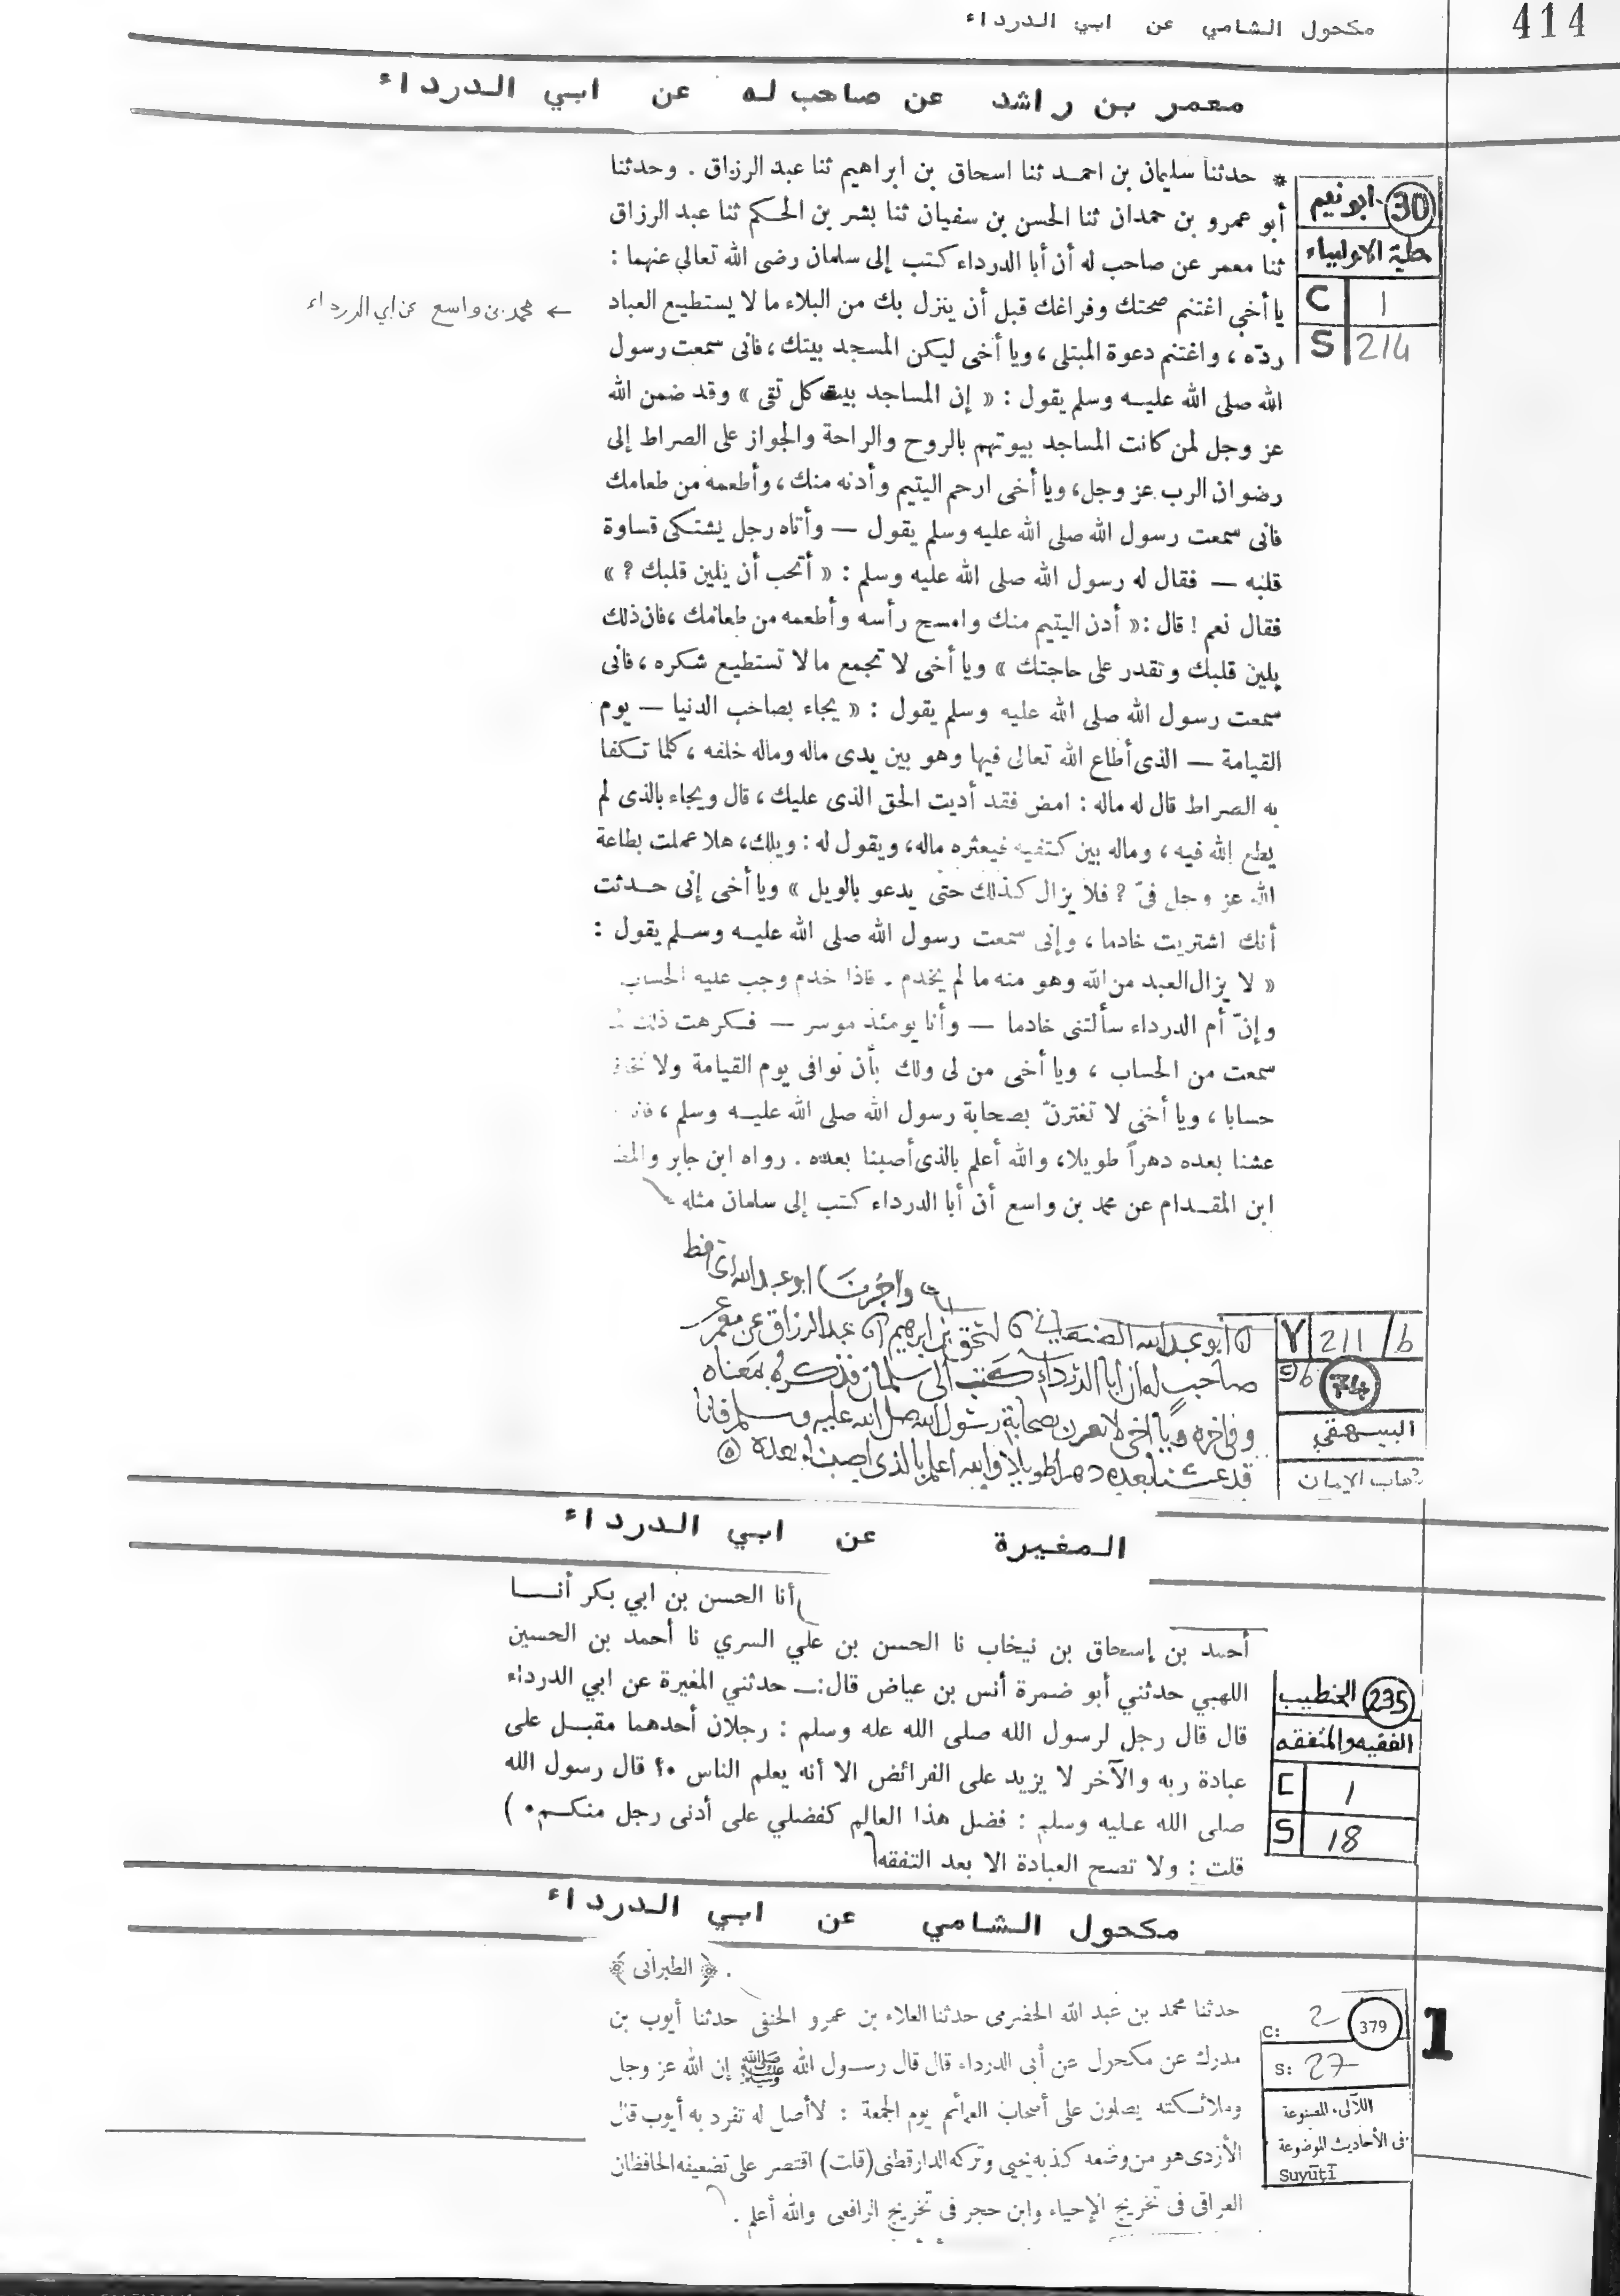 414
مكحول الشامي عن ابي الدرداء
معمر بن راشد عن صاحب له عن ابي الدرداء
30 ابو نعيم
حلية الاولياء
C 1
S 214
* حدثنا سليمان بن احمد ثنا اسحاق بن ابراهيم ثنا عبد الرزاق . وحدثنا
أبو عمرو بن حمدان ثنا الحسن بن سفيان ثنا بشر بن الحكم ثنا عبد الرزاق
ثنا معمر عن صاحب له أن أبا الدرداء كتب إلى سلمان رضى الله تعالى عنهما :
يا أخى اغتنم صحتك وفراغك قبل أن ينزل بك من البلاء ما لا يستطيع العباد
← محمد بن واسع عن ابي الدرداء
ردّه ، واغتنم دعوة المبتلى ، ويا أخى ليكن المسجد بيتك ، فانى سمعت رسول
الله صلى الله عليه وسلم يقول : « إن المساجد بيت كل تقى » وقد ضمن الله
عز وجل لمن كانت المساجد بيوتهم بالروح والراحة والجواز على الصراط إلى
رضوان الرب عز وجل ، ويا أخى ارحم اليتيم وأدنه منك ، وأطعمه من طعامك
فانى سمعت رسول الله صلى الله عليه وسلم يقول — وأتاه رجل يشتكى قساوة
قلبه — فقال له رسول الله صلى الله عليه وسلم : « أتحب أن يلين قلبك ؟ »
فقال نعم ! قال : « أدن اليتيم منك وامسح رأسه وأطعمه من طعامك ، فان ذلك
يلين قلبك وتقدر على حاجتك » ويا أخى لا تجمع ما لا تستطيع شكره ، فانى
سمعت رسول الله صلى الله عليه وسلم يقول : « يجاء بصاحب الدنيا — يوم
القيامة — الذى أطاع الله تعالى فيها وهو بين يدى ماله وماله خلفه ، كلما تكفا
به الصراط قال له ماله : امض فقد أديت الحق الذى عليك ، قال ويجاء بالذى لم
يطع الله فيه ، وماله بين كتفيه فيعثره ماله ، ويقول له : ويلك ، هلا عملت بطاعة
الله عز وجل فىّ ؟ فلا يزال كذلك حتى يدعو بالويل » ويا أخى إنى حدثت
أنك اشتريت خادما ، وإنى سمعت رسول الله صلى الله عليه وسلم يقول :
« لا يزال العبد من الله وهو منه ما لم يخدم . فاذا خدم وجب عليه الحساب
وإنّ أم الدرداء سألتنى خادما — وأنا يومئذ موسر — فكرهت ذلك
سمعت من الحساب ، ويا أخى من لى ولك بأن نوافى يوم القيامة ولا
حسابا ، ويا أخى لا تغترنّ بصحابة رسول الله صلى الله عليه وسلم ،
عشنا بعده دهراً طويلا ، والله أعلم بالذى أصبنا بعده . رواه ابن جابر
ابن المقدام عن محمد بن واسع أن أبا الدرداء كتب إلى سلمان مثله
واخبرنا ابو عبد الله الحافظ
Y 211/b
74
البيهقي
شعاب الايمان
ابو عبد الله الصنعاني اسحق بن ابرهيم عبد الرزاق عن معمر عن
صاحب له ان ابا الدرداء كتب الى سلمان فذكره بمعناه
وفي اخره ويا اخي لا تغترن بصحابة رسول الله صلى الله عليه وسلم فانا
قد عشنا بعده دهرا طويلا والله اعلم بالذي اصبنا بعده
المغيرة عن ابي الدرداء
أنا الحسن بن ابي بكر أنا
أحمد بن إسحاق بن نيخاب نا الحسن بن علي السري نا أحمد بن الحسين
اللهبي حدثني أبو ضمرة أنس بن عياض قال : حدثني المغيرة عن ابي الدرداء
قال قال رجل لرسول الله صلى الله عله وسلم : رجلان أحدهما مقبل على
عبادة ربه والآخر لا يزيد على الفرائض الا أنه يعلم الناس ؟ قال رسول الله
صلى الله عليه وسلم : فضل هذا العالم كفضلي على أدنى رجل منكم . )
قلت : ولا تصح العبادة الا بعد التفقه
235 الخطيب
الفقيه والمتفقه
C 1
S 18
مكحول الشامي عن ابي الدرداء
﴿ الطبرانى ﴾
حدثنا محمد بن عبد الله الحضرمى حدثنا العلاء بن عمرو الحنفى حدثنا أيوب بن
مدرك عن مكحول عن أبى الدرداء قال قال رسول الله ﷺ إن الله عز وجل
وملائكته يصلون على أصحاب العمائم يوم الجمعة : لا أصل له تفرد به أيوب قال
الأزدى هو من وضعه كذبه يحيى وتركه الدارقطنى (قلت) اقتصر على تضعيفه الحافظان
العراقى فى تخريج الإحياء وابن حجر فى تخريج الرافعى والله أعلم .
1
C: 2 379
S: 27
اللآلىء المصنوعة
فى الأحاديث الموضوعة
Suyūṭī